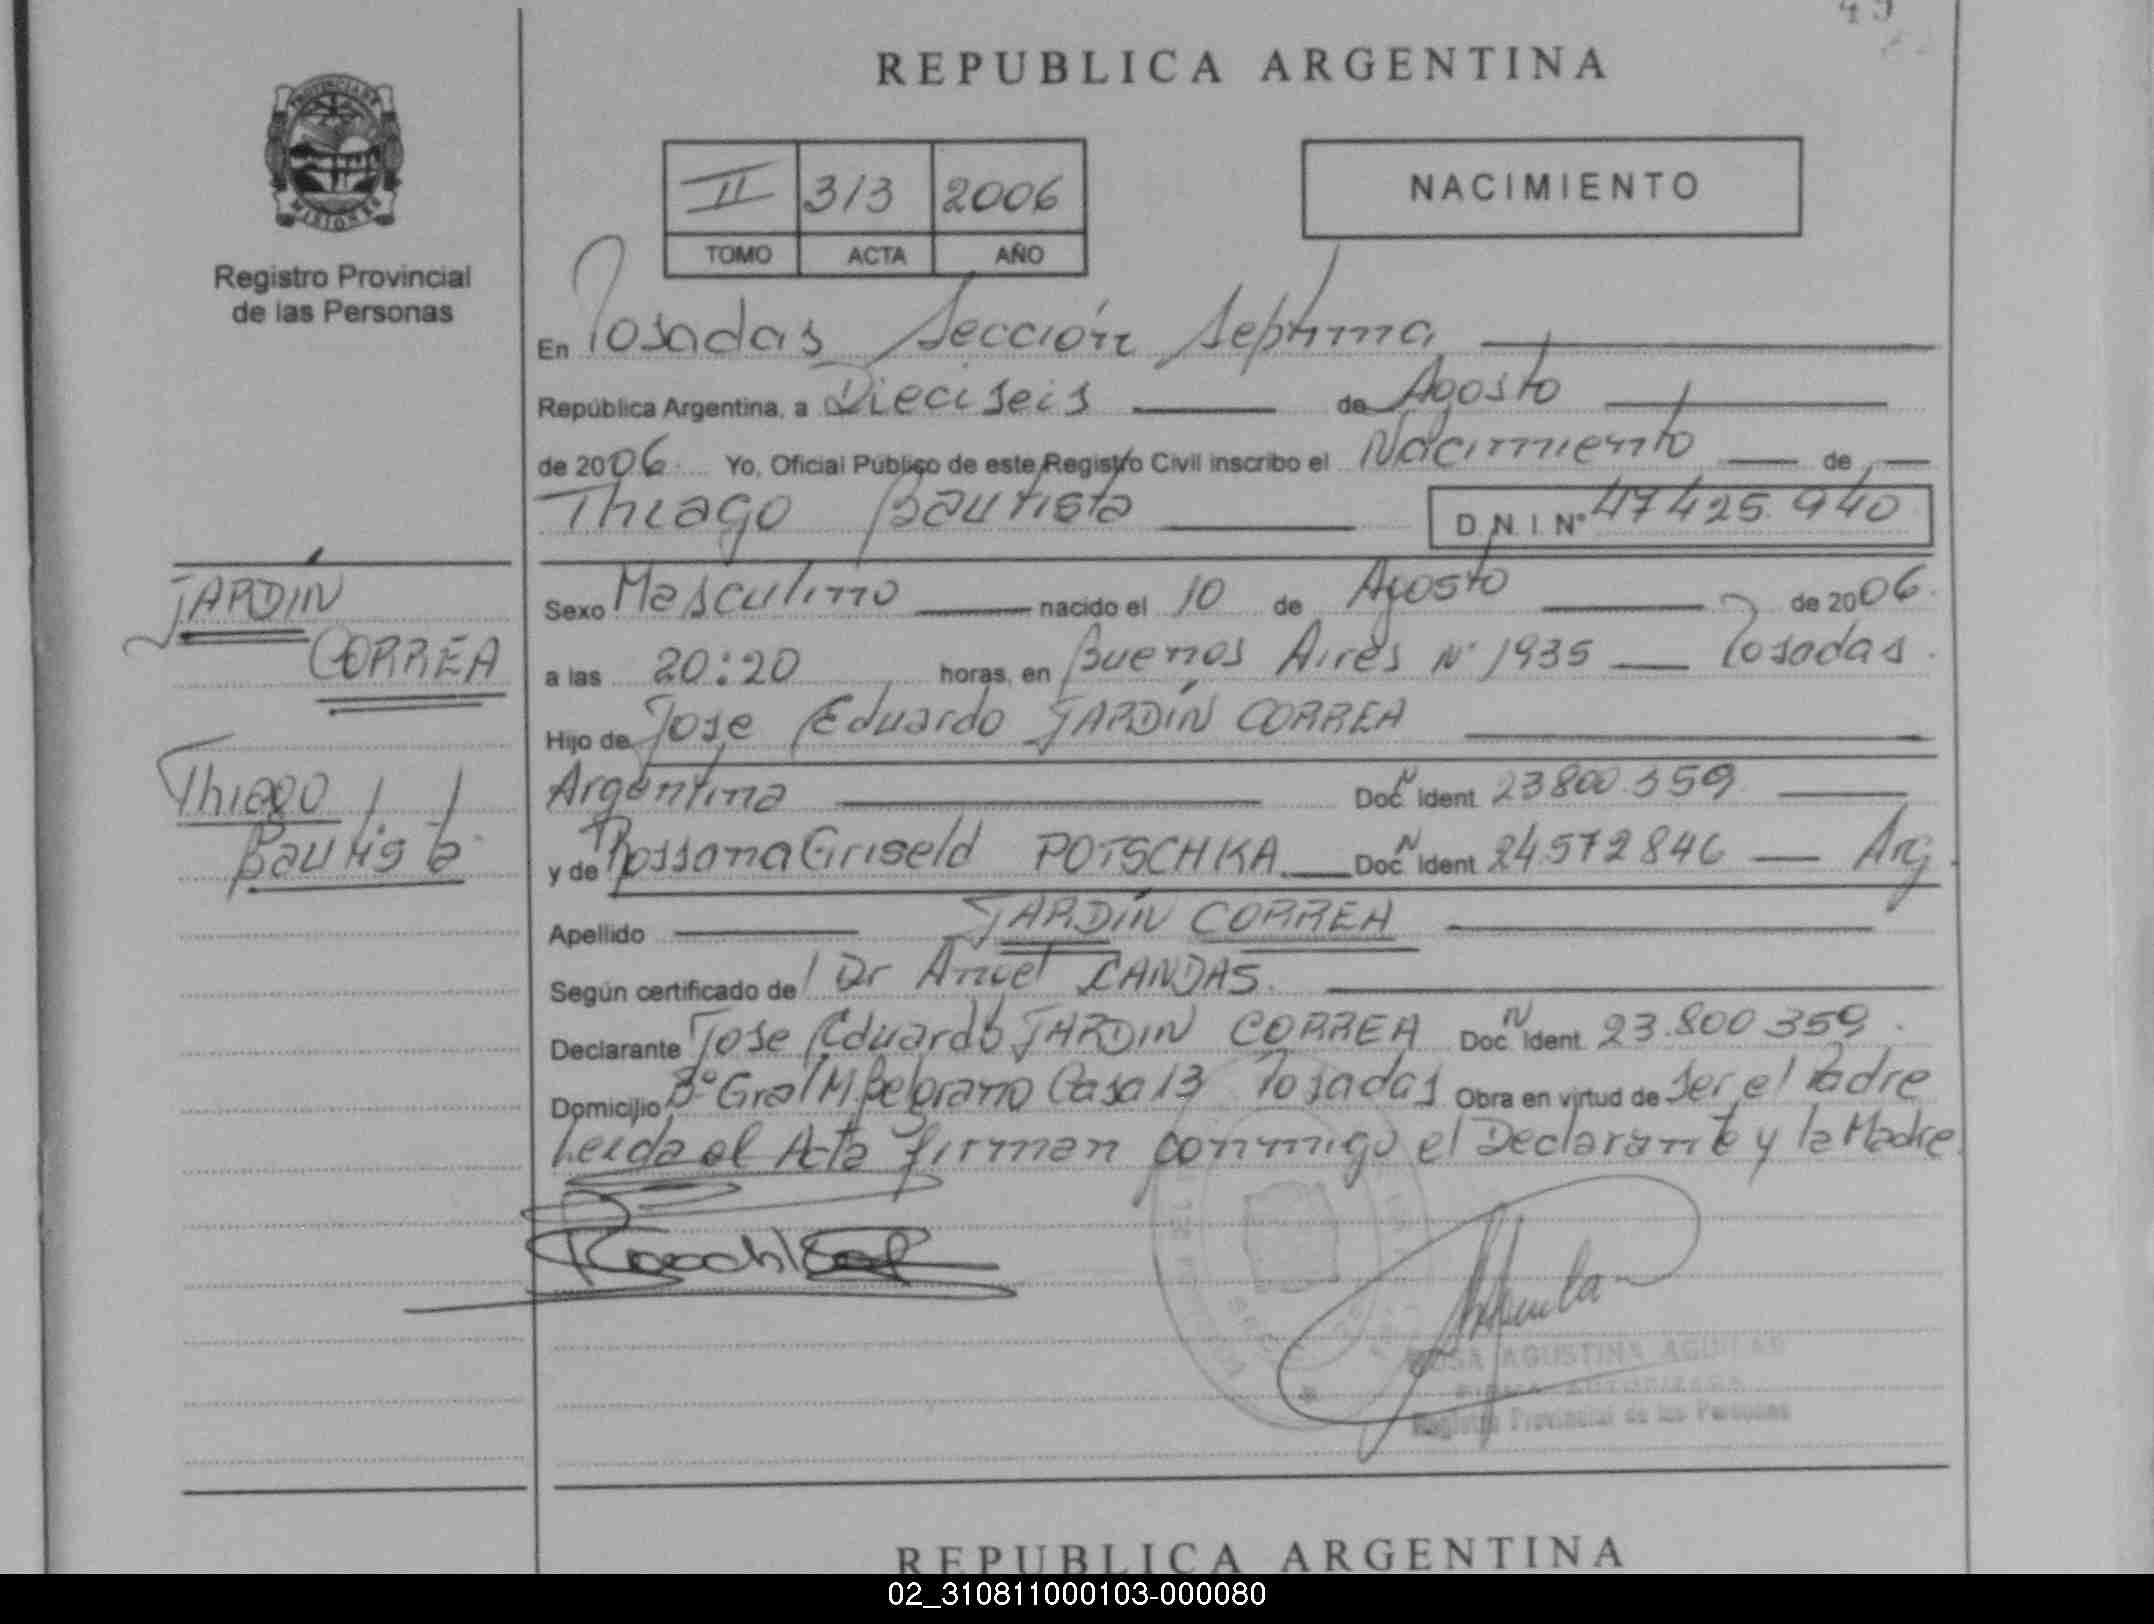 49
REPUBLICA ARGENTINA
PROVINCIA DE
MISIONES
Registro Provincial
de las Personas
II 313 2006
TOMO ACTA AÑO
NACIMIENTO
En Posadas Sección Septima
República Argentina, a Dieciseis de Agosto
de 2006 Yo, Oficial Público de este Registro Civil inscribo el Nacimiento de
Thiago Bautista D.N.I. N° 47 425.940
JARDÍN
CORREA
Thiago
Bautista
Sexo Masculino nacido el 10 de Agosto de 2006.
a las 20:20 horas, en Buenos Aires N° 1935 Posadas.
Hijo de Jose Eduardo JARDÍN CORREA
Argentina Doc N Ident. 23800.359
y de Rossana Griseld POTSCHKA Doc N Ident. 24572846 Arg.
Apellido JARDÍN CORREA
Según certificado de Dr Angel CANDAS.
Declarante Jose Eduardo JARDIN CORREA Doc N Ident. 23.800 359.
Domicilio B° Gral M. Belgrano Casa 13 Posadas Obra en virtud de Ser el Padre
Leida el Acta firman conmigo el Declarante y la Madre.
ROSA AGUSTINA AGUILAR
FIRMA AUTORIZADA
Registro Provincial de las Personas
REPUBLICA ARGENTINA
02_310811000103-000080